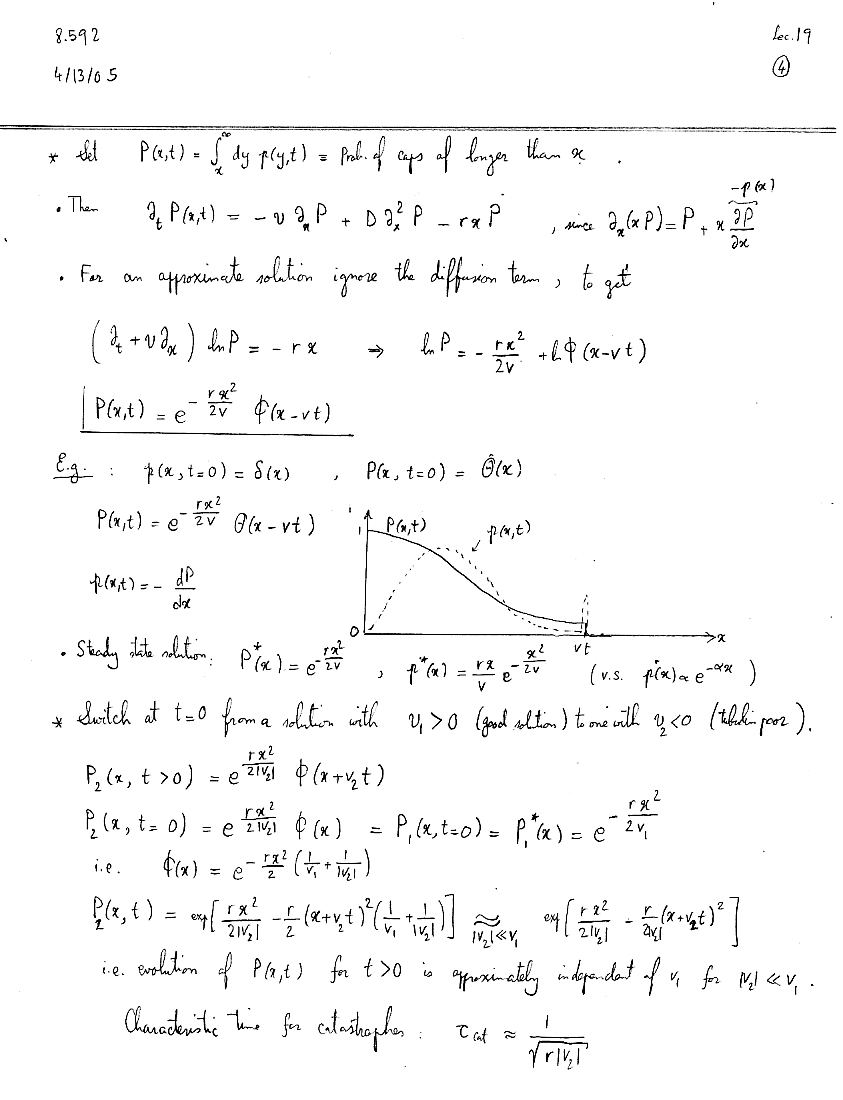 8.592
Lec. 19
4/13/05
④
* Set P(x,t) = ∫_x^∞ dy p(y,t) ≡ Prob. of caps of longer than x .
• Then ∂_t P(x,t) = - v ∂_x P + D ∂_x^2 P - r x P , since ∂_x(xP) = P + x ∂P/∂x -p(x)
• For an approximate solution ignore the diffusion term, to get
(∂_t + v∂_x) ln P = - r x ⇒ ln P = - rx^2/2v + ln Φ(x-vt)
P(x,t) = e^{- rx^2/2v} Φ(x-vt)
E.g. : p(x,t=0) = δ(x) , P(x,t=0) = Θ̂(x)
P(x,t) = e^{- rx^2/2v} Θ(x-vt)
1 P(x,t) p(x,t)
p(x,t) = - dP/dx
0 vt x
• Steady state solution: P*(x) = e^{- rx^2/2v} , p*(x) = rx/v e^{- x^2/2v} (v.s. p*(x) ∝ e^{-αx})
* Switch at t=0 from a solution with v_1 > 0 (good soltion) to one with v_2 < 0 (tubulin poor).
P_2(x, t>0) = e^{rx^2/2|v_2|} Φ(x+v_2t)
P_2(x, t=0) = e^{rx^2/2|v_2|} Φ(x) = P_1(x,t=0) = P_1*(x) = e^{- rx^2/2v_1}
i.e. Φ(x) = e^{- rx^2/2 (1/v_1 + 1/|v_2|)}
P_2(x,t) = exp[ rx^2/2|v_2| - r/2 (x+v_2t)^2 (1/v_1 + 1/|v_2|) ] ≈_{|v_2| ≪ v_1} exp[ rx^2/2|v_2| - r/2|v_2| (x+v_2t)^2 ]
i.e. evolution of P(x,t) for t>0 is approximately independent of v_1 for |v_2| ≪ v_1 .
Characteristic time for catastrophes : τ_cat ≈ 1/√(r|v_2|)